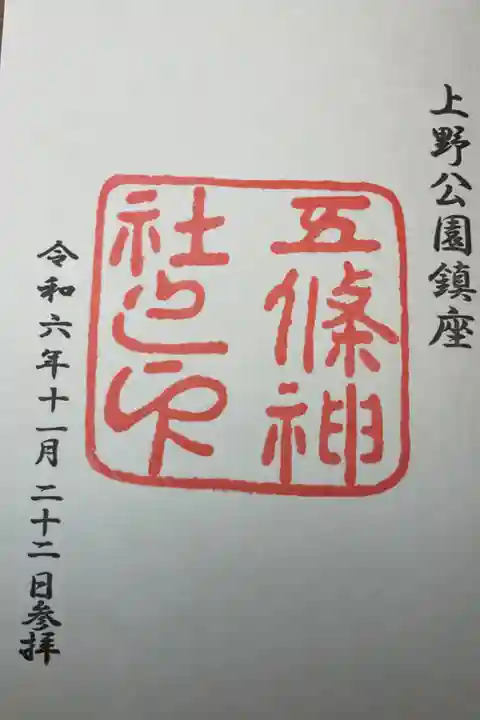 上野公園鎮座
五條神
社之印
令和六年十一月二十二日参拝